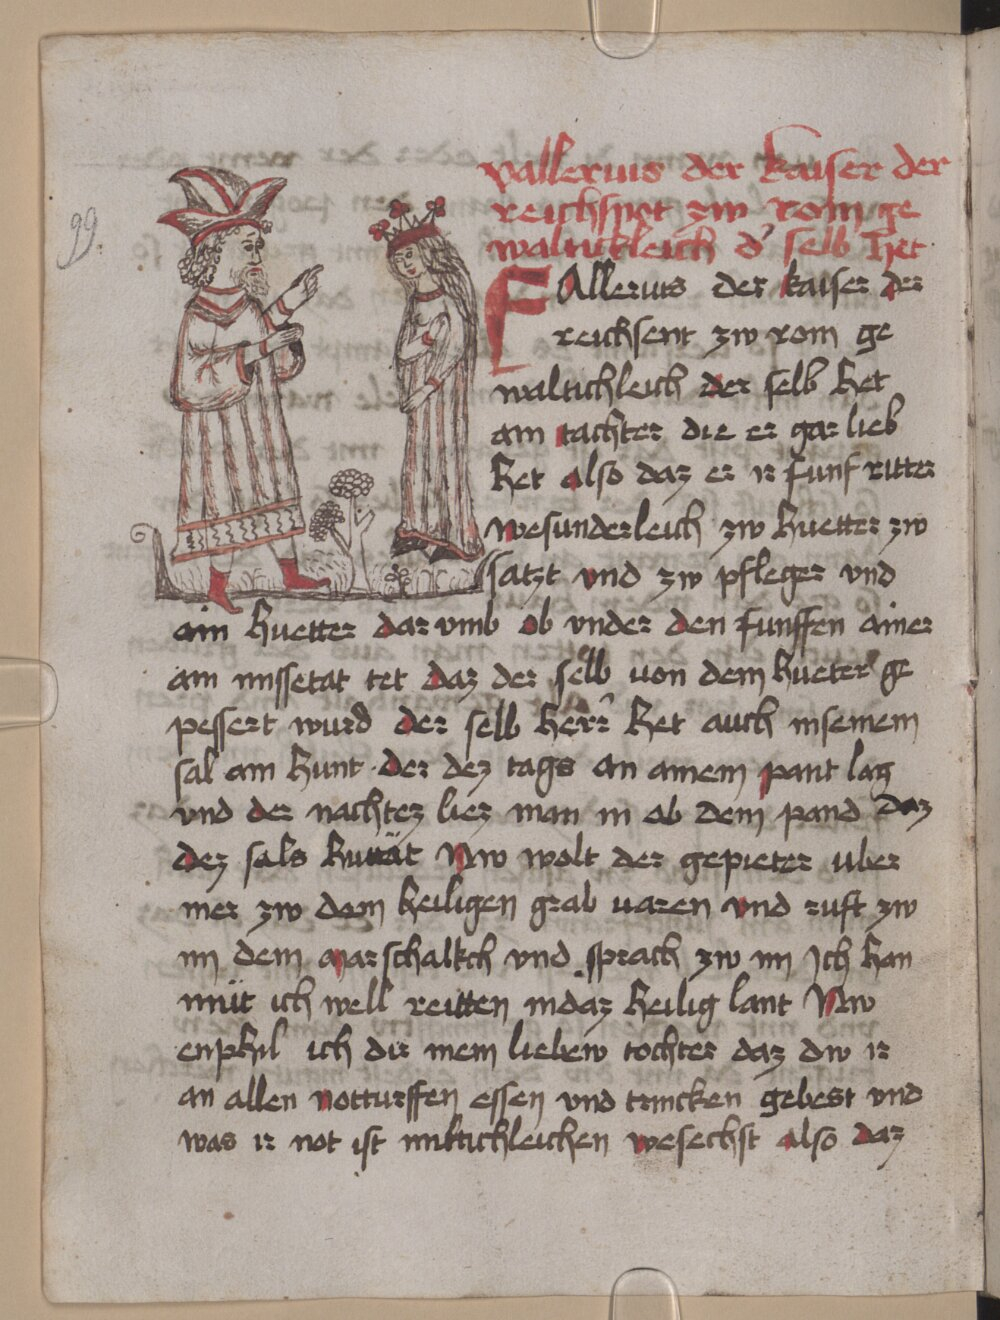 99
vallerius der kaiser der
reichsnet zw rom ge
waltickleich d' selb het
Fallerius der kaiser der
reichsent zw rom ge
waltichleich der selb het
ain tachter die er gar lieb
het also daz er ir funf ritter
wesunderleich zw huetter zw
satzt vnd zw pfleger vnd
ain huetter dar vmb ob vnder den funffen ainer
ain missetat tet daz der selb von dem hueter ge
pessert wurd der selb herr het auch in seinem
sal ain hunt der dez tags an ainem pant lag
vnd der nachtez liez man in ab dem pand daz
dez sals huttät Nw wolt der gepieter vber
mer zw dem heiligen grab varen vnd ruft zw
im dem marschalkch vnd sprach zw im Ich han
müt ich well reitten in daz heilig lant Nw
enphil ich dir mein liebew tochter daz dw ir
an allen notturffen essen vnd trincken gebest vnd
was ir not ist miltichleichen wesechst also daz